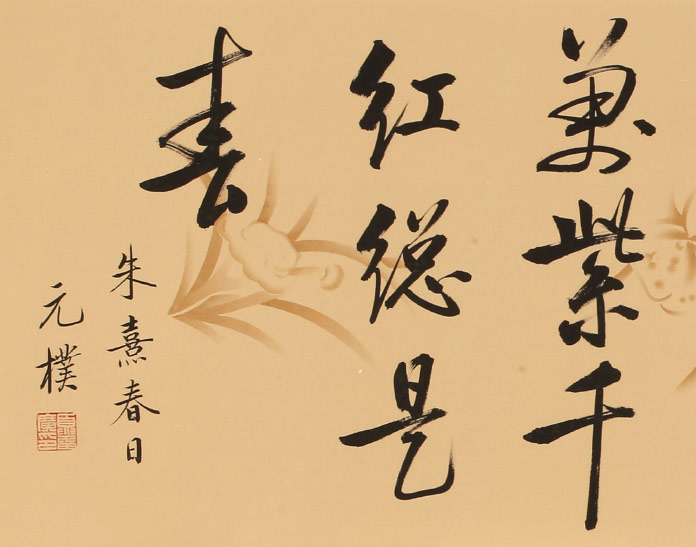 萬紫千
紅総是
春
朱熹春日
元樸